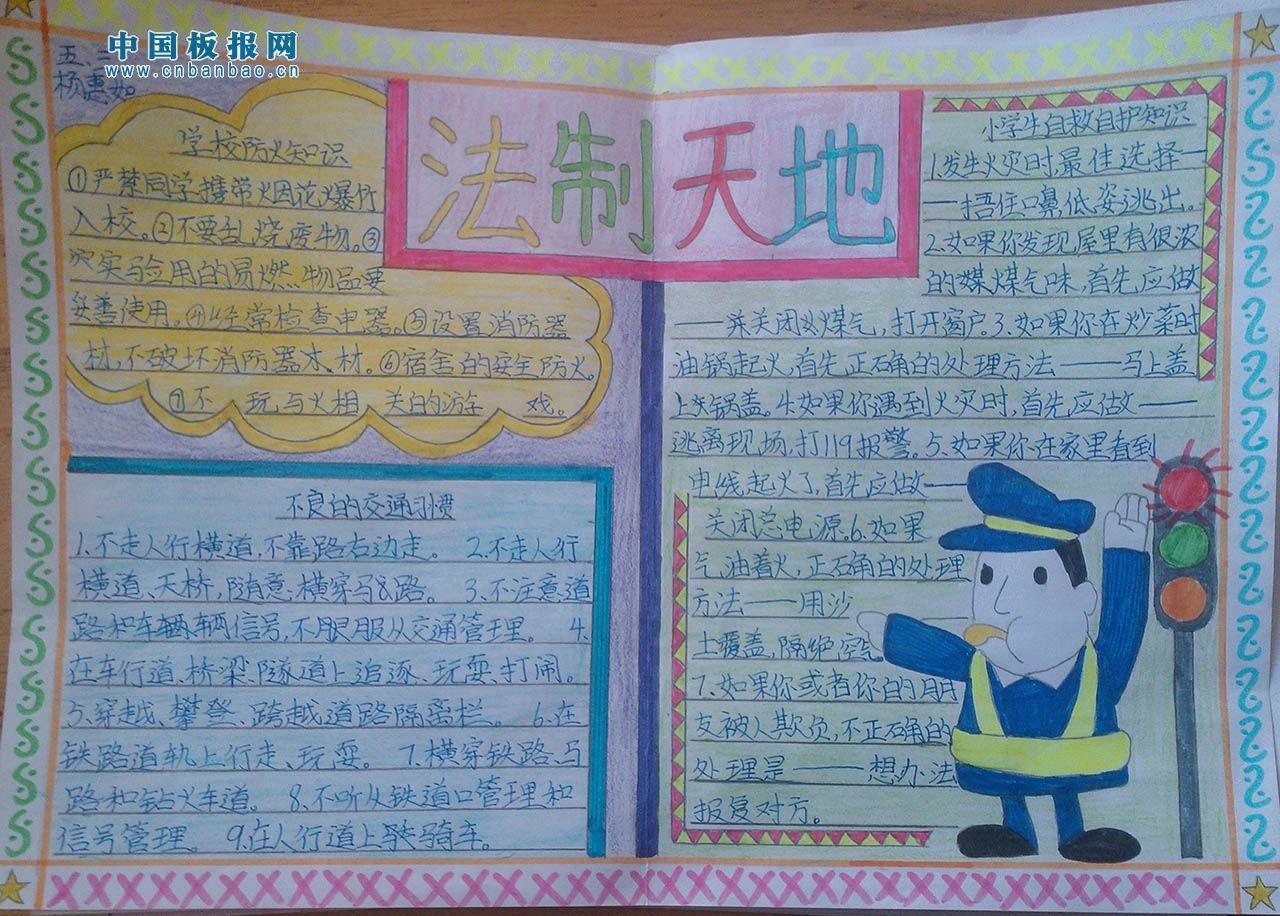 中国板报网
www.cnbanbao.cn
五 二
杨惠如
法制天地
学校防火知识
①严禁同学携带火因花爆竹
入校。②不要乱烧废物。③
实验用的易燃物品要
妥善使用。④经常检查电器。⑤设置消防器
材,不破坏消防器木材。⑥宿舍的安全防火。
⑦不玩与火相关的游戏。
不良的交通习惯
1.不走人行横道,不靠路右边走。 2.不走人行
横道、天桥,随意横穿马路。 3.不注意道
路和车辆信号,不服从交通管理。 4.
在车行道、桥梁、隧道上追逐、玩耍、打闹。
5.穿越、攀登、跨越道路隔离栏。 6.在
铁路道轨上行走、玩耍。 7.横穿铁路、马
路和钻火车道。 8.不听从铁道口管理和
信号管理。 9.在人行道上骑车。
小学生自救自护知识
1.发生火灾时,最佳选择—
—捂住口鼻,低姿逃出。
2.如果你发现屋里有很浓
的煤气味,首先应做
——关闭煤气,打开窗户。3.如果你在炒菜时
油锅起火,首先正确的处理方法——马上盖
上锅盖。4.如果你遇到火灾时,首先应做——
逃离现场,打119报警。5.如果你在家里看到
电线起火了,首先应做——
关闭总电源。6.如果
气油着火,正确的处理
方法——用沙
土覆盖,隔绝空
7.如果你或者你的朋
友被人欺负,不正确的
处理是——想办法
报复对方。